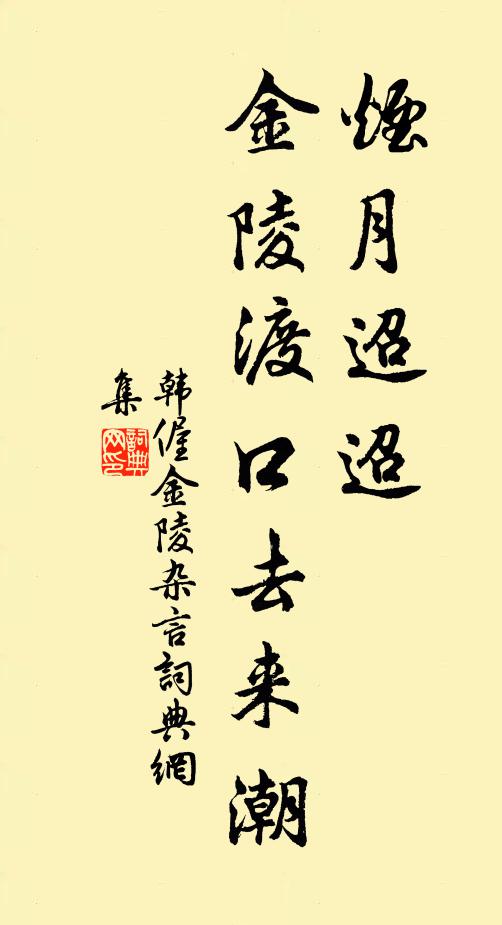 煙月迢迢
金陵渡口去来潮
韩偓金陵杂言詞典網
集
詞典
网印